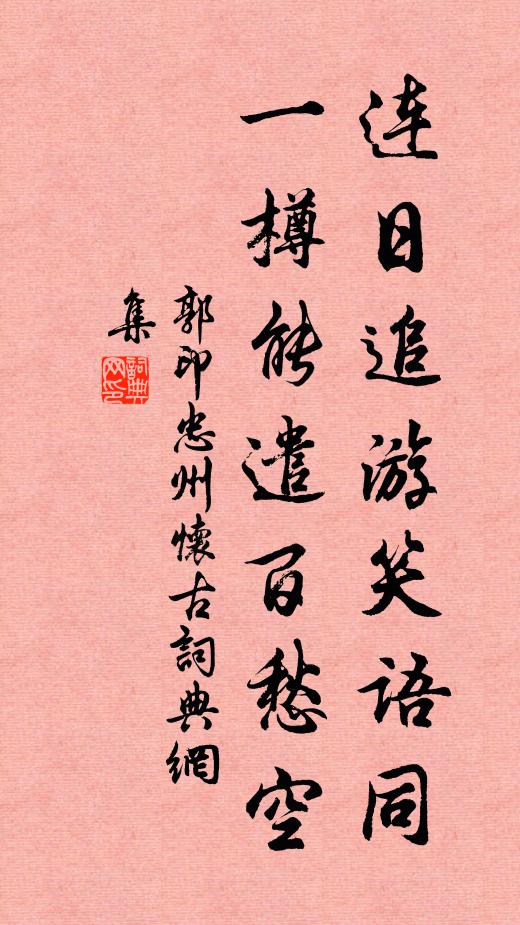 连日追游笑语同
一樽能遣百愁空
郭印忠州懷古詞典網
集
詞典
网印